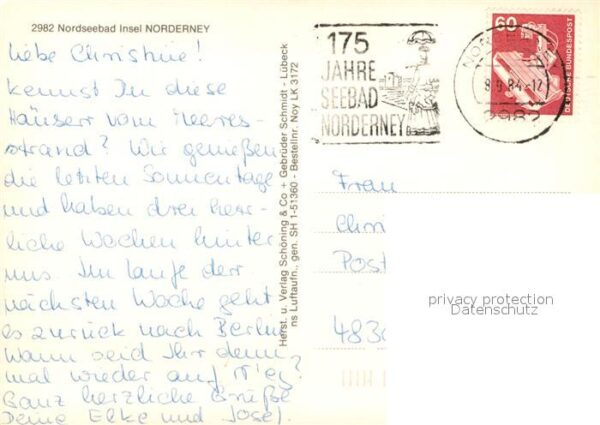 2982 Nordseebad Insel NORDERNEY
Liebe Christine!
kennst Du diese
Häuser vom Meeres-
strand? Wir genießen
die letzten Sonnentage
und haben drei herr-
liche Wochen hinter
uns. Im Laufe der
nächsten Woche geht
es zurück nach Berlin
Wann seid Ihr denn
mal wieder auf N'ey?
Ganz herzliche Grüße
Deine Elke und Josef.
Herst. u. Verlag Schöning & Co + Gebrüder Schmidt - Lübeck
ns Luftaufn., gen. SH 1-51360 - Bestellnr. Noy LK 3172
175
JAHRE
SEEBAD
NORDERNEY
60
DEUTSCHE BUNDESPOST
8.9.84-17
2982
Frau
Chri
Post
4830
privacy protection
Datenschutz